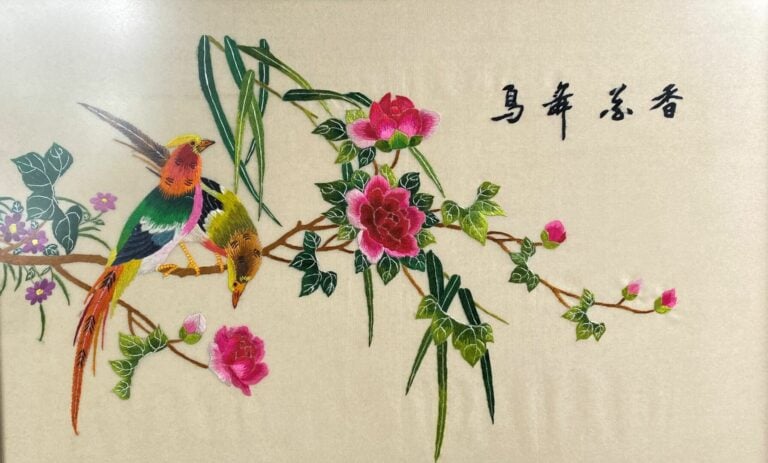 鳥舞花香